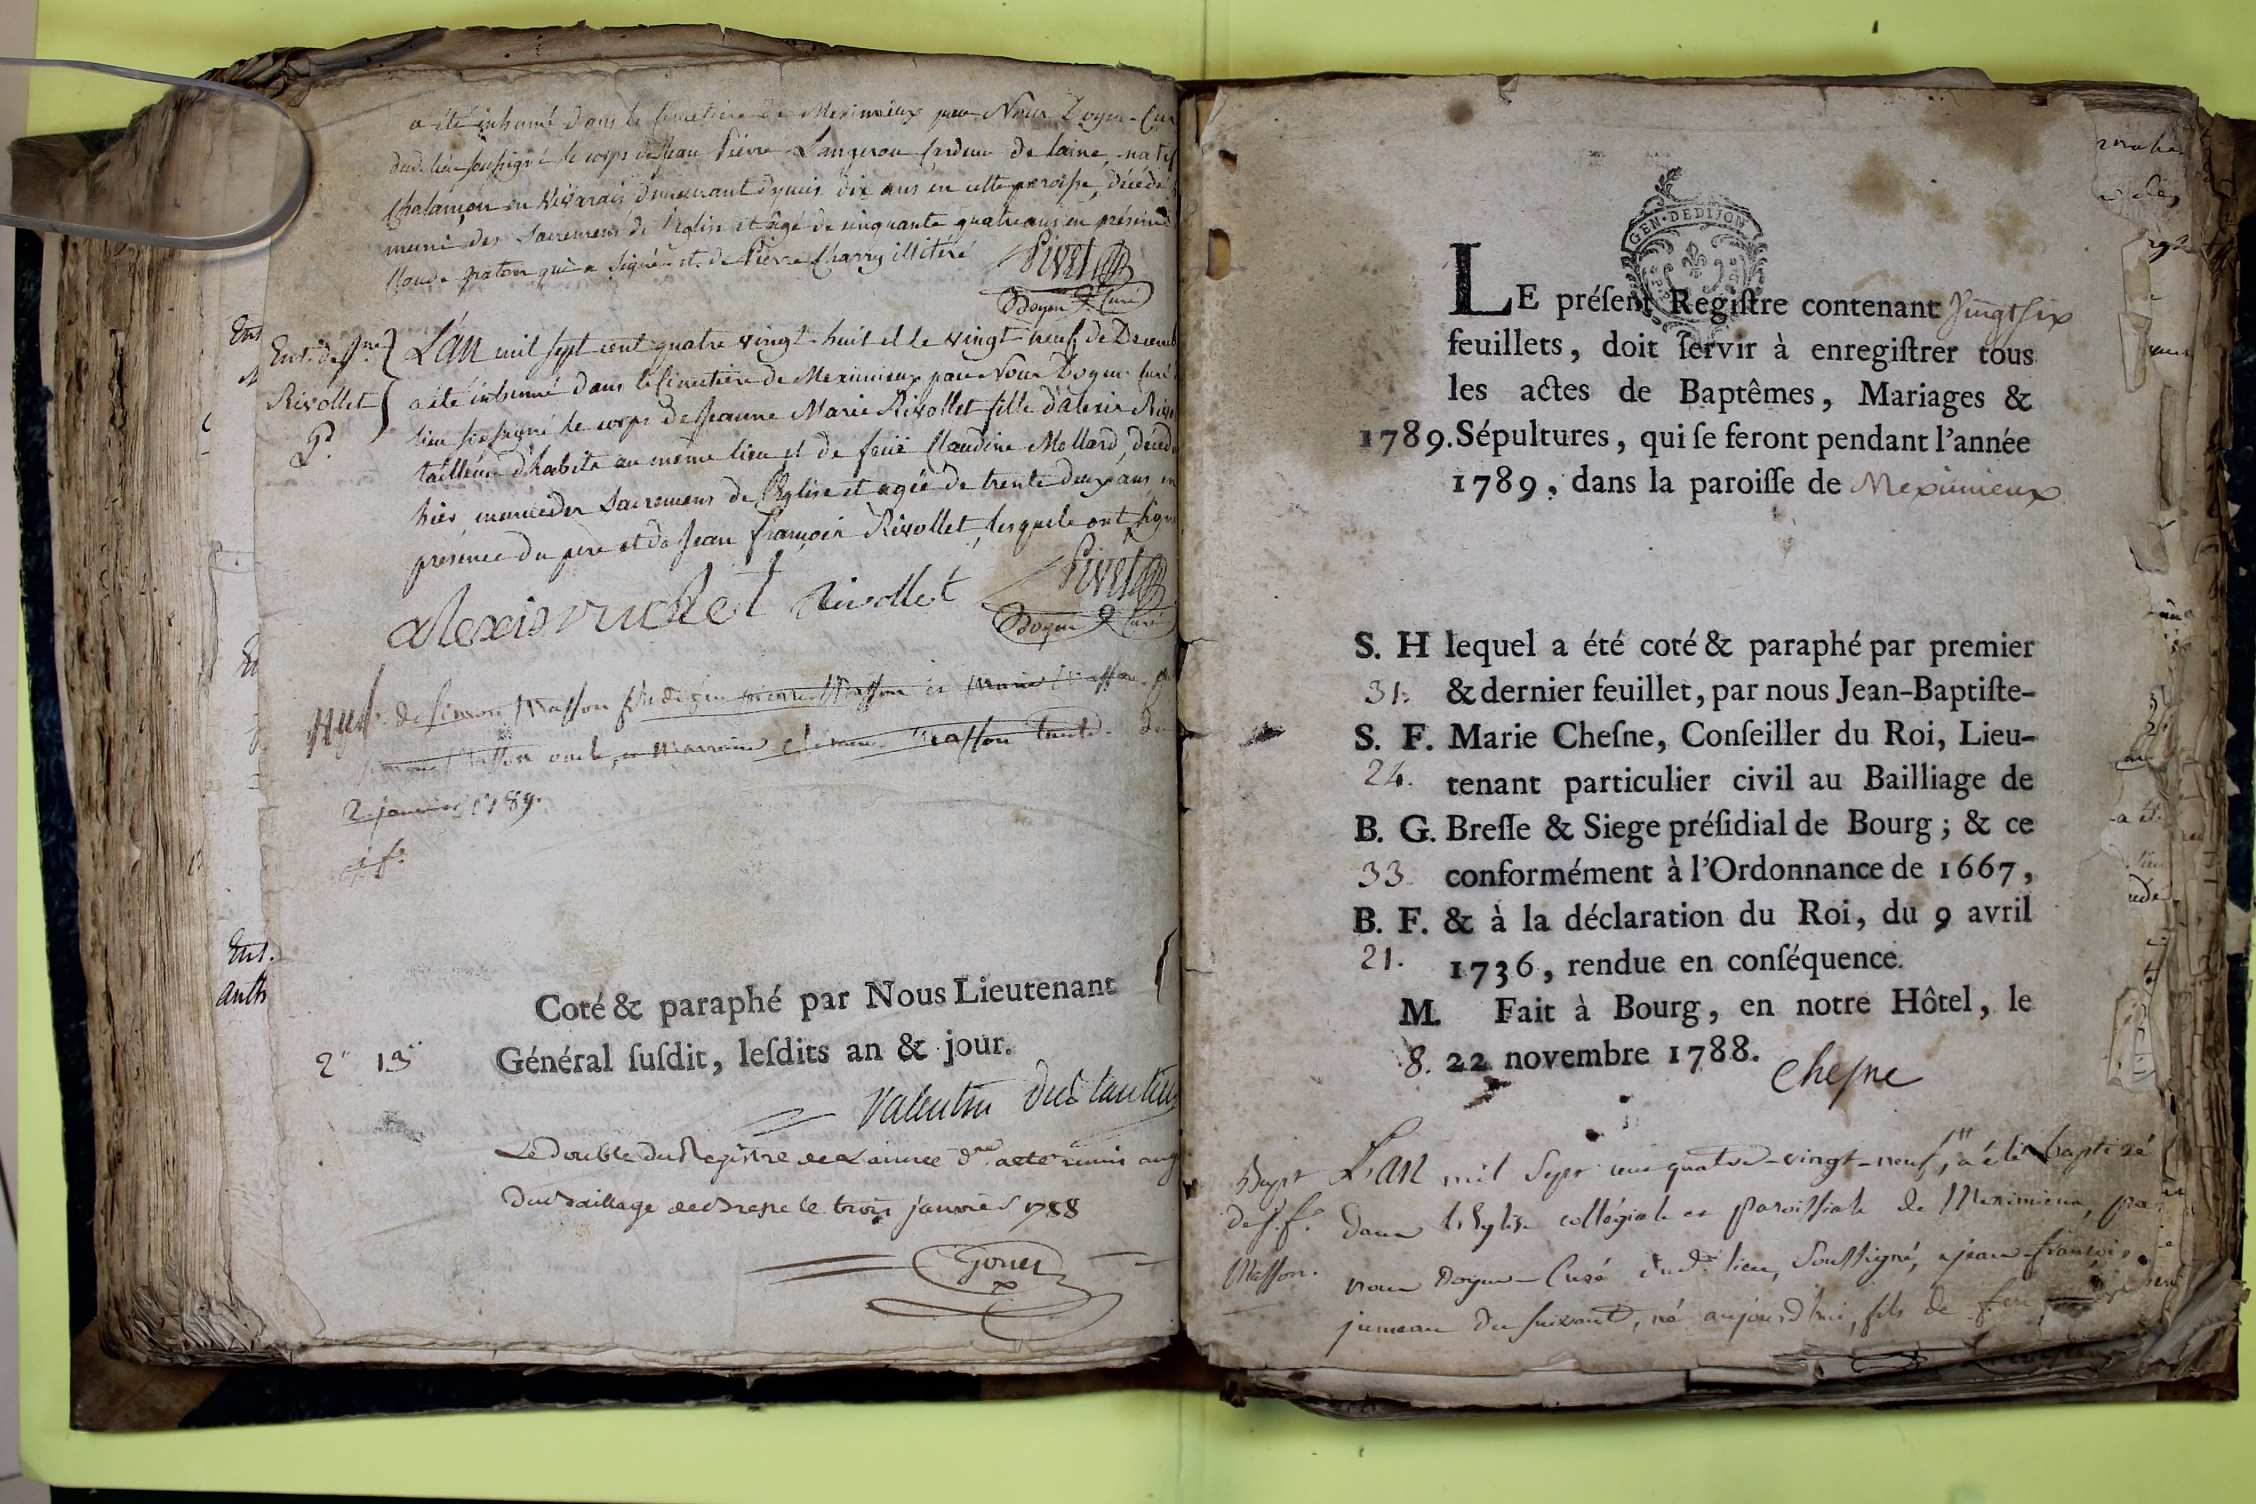 a été inhumé dans le cimetiere de Meximieux par Nous Doyen-Cur
dud. lieu soussigné le corps de Jean Piérre Langeron Cardeur de laine, natif
Chalamçon en Vivarais demeurant depuis dix ans en cette paroisse, décédé
muni des Sacremens de l'Eglise et âgé de cinquante quatre ans en présence
Claude graton qui a signé et de Pierre Charry illitéré
Pivet
Doyen & Curé
Ent. de Jne
Rivollet
L'an mil sept cent quatre vingt-huit et le vingt-neuf de Decemb
a été inhumé dans le Cimetiere de Meximieux par Nous Doyen Curé
lieu soussigné le corps de Jeanne Marie Rivollet fille d'alexis Rivo
tailleur d'habits au même lieu et de feüe Claudine Mollard, deced
hier munie des Sacremens de l'Eglise et agée de trente deux ans en
présence du pere et de Jean françois Rivollet, lesquels ont signé
alexis rivollet Rivollet
Pivet
Doyen & Curé
de Simon Masson fils de feu pierre Masson et Marie Masson
Masson oncle, et Marraine Masson tante.
2. janvier 1789.
Ent.
anth
Coté & paraphé par Nous Lieutenant
Général ſuſdit, leſdits an & jour.
2 13
Valentin
Le Double du Registre de L'année dre acte remis au g
du Baillage de Bresse le trois janvier 1788
Goner
GEN·DEDIJON
LE préſent Regiſtre contenant Vingt ſix
feuillets, doit ſervir à enregiſtrer tous
les actes de Baptêmes, Mariages &
1789. Sépultures, qui ſe feront pendant l'année
1789, dans la paroiſſe de Meximieux
S. H lequel a été coté & paraphé par premier
31. & dernier feuillet, par nous Jean-Baptiſte-
S. F. Marie Cheſne, Conſeiller du Roi, Lieu-
24. tenant particulier civil au Bailliage de
B. G. Breſſe & Siege préſidial de Bourg ; & ce
33. conformément à l'Ordonnance de 1667,
B. F. & à la déclaration du Roi, du 9 avril
21. 1736, rendue en conſéquence.
M. Fait à Bourg, en notre Hôtel, le
8. 22 novembre 1788.
Chesne
Bapt
de j. f.
Masson.
L'an mil Sept cent quatre-vingt-neuf, a été baptizé
dans l'Eglise collégiale et paroissiale de Meximieux, par
nous Doyen-Curé dud. lieu, Soussigné, jean-françois
jumeau du suivant, né aujourd'hui, fils de feu